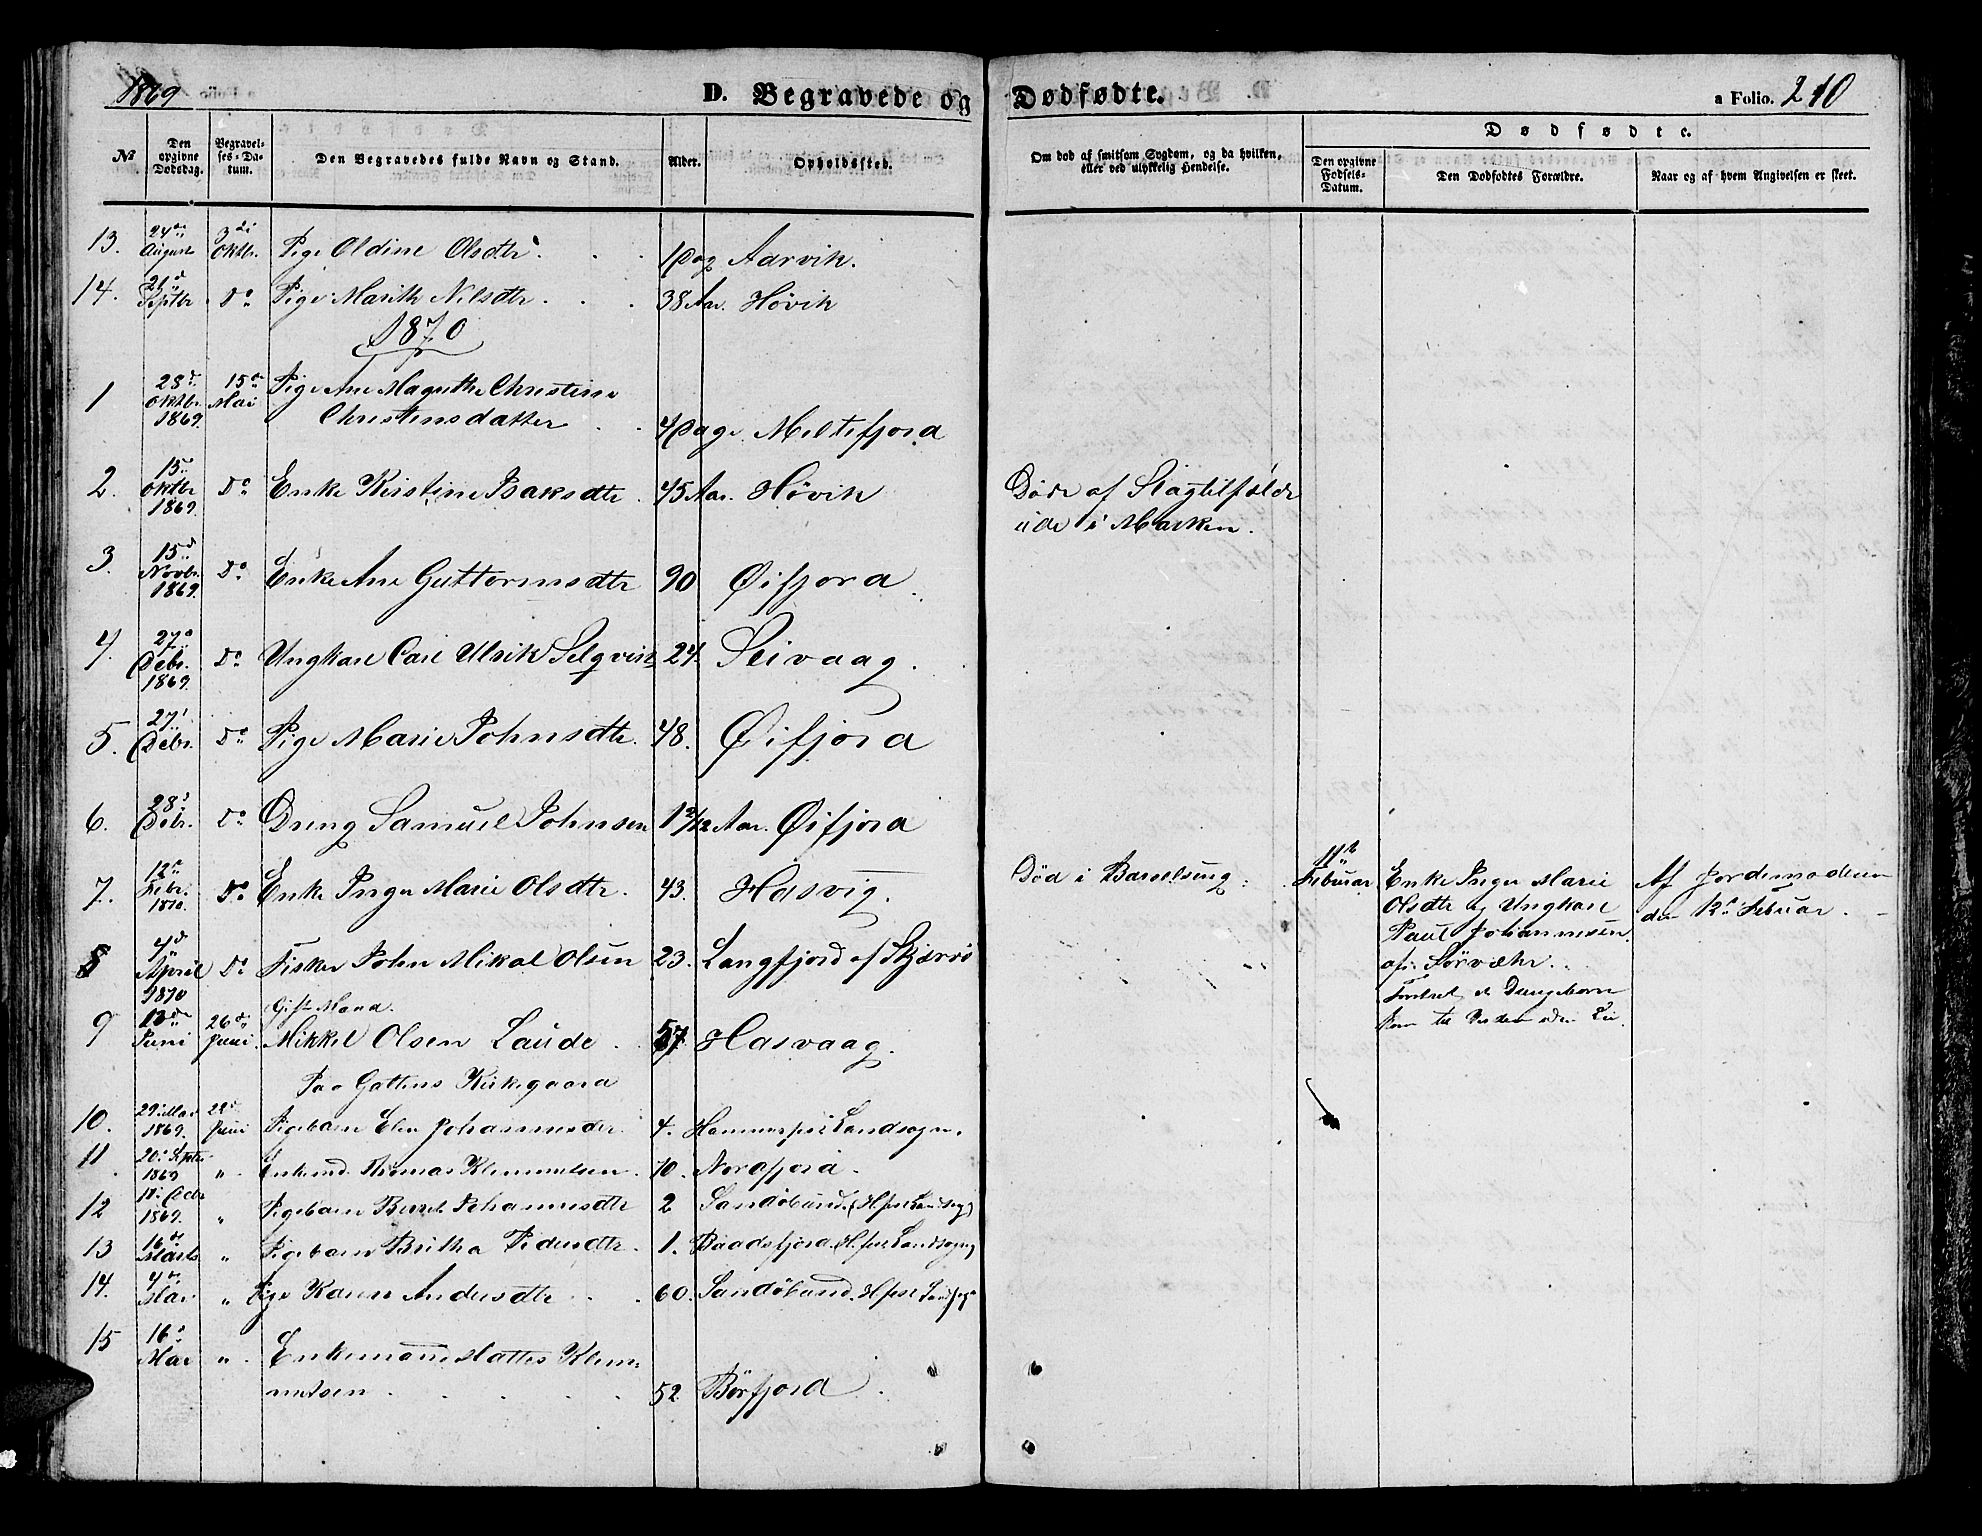 1869
D. Begravede og Dødfødte.
a Folio. 210
№
Den opgivne Dødsdag.
Begravelses-Datum.
Den Begravedes fulde Navn og Stand.
Alder.
Opholdssted.
Om død af smitsom Sygdom, og da hvilken, eller ved ulykkelig Hendelse.
Dødfødte.
Den opgivne Fødsels-Datum.
Den Dødfødtes Forældre.
Naar og af hvem Angivelsen er skeet.
13. 24de August 3die Oktbr. Pige Oldine Olsdtr. 1 Dag Aarvik.
14. 21de Septbr Do Pige Marith Nilsdtr. 38 Aar. Høvik
1870
1 28de Oktbr. 1869. 15de Mai Pige Ane Magrethe Christine
Christensdatter 4 Dage. Meltefjord
2. 15de Oktbr 1869. Do Enke Kirstine Isaksdtr. 45 Aar. Høvik Døde af Slagtilfælde
ude i Marken.
3. 15de Novbr. 1869. Do Enke Ane Guttormsdtr 90 Øifjord
4. 27de Debr. 1869. Do Ungkarl Carl Ulrik Selqvist 24. Seivaag.
5. 27. Debr. Do Pige Marie Johnsdtr. 48. Øifjord
6. 28. Debr. Do Dreng Samuel Johnsen 1 2/12 Aar. Øifjord
7. 12te Febr. 1870. Do Enke Inger Marie Olsdtr. 43. Hasvig. Død i Barselseng. 11te Februar Enke Inger Marie Af Jordemoderen
Olsdtr og Ungkarl den 12te Februar.
Paul Johannesen.
af Sørvær.
8 4de April 1870 Do Fisker John Mikal Olsen 23. Langfjord af Skjærvø
Gift Mand.
9 13de Juni 26de Juni. Mikkel Olsen Laude. 57 Hasvaag.
Paa Gåttens Kirkegaard
10. 29. Mai 1869. 29de Juni Pigebarn Elen Johannesdtr. 4. Hammerfest Landsogn.
11 20. Septbr 1869 " Enkemd. Thomas Klemmetsen. 70. Nordfjord.
12 1869. " Pigebarn Beret Johannesdtr 2 Sandøbund. (Hfest Landsogn)
13 16de Marts " Pigebarn Britha Pedersdtr. 1. Baadsfjord. (Hfest Landsogn)
14. 4de Mai " Pige Karen Andersdtr 60. Sandøbund. Hfest Landsogn
15 16de Mai " Enkemand Mattes Klem-
metsen 52 Børfjord.